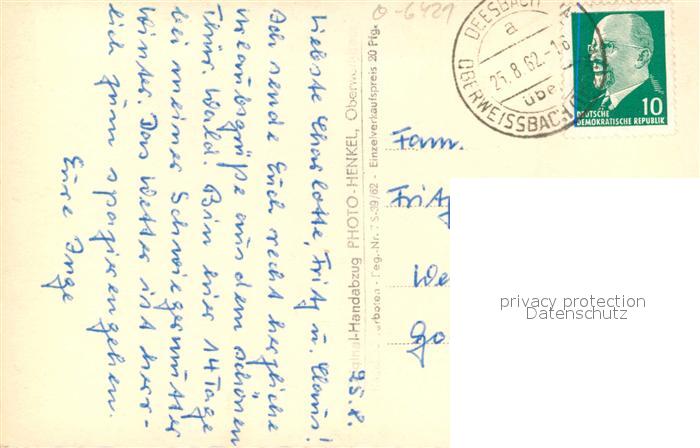 25.8.
Liebste Charlotte, Fritz u. Claus!
Ich sende Euch recht herzliche
Urlaubsgrüße aus dem schönen
Thür. Wald. Bin hier 14 Tage
bei meiner Schwiegermutter
Winter. Das Wetter ist herr-
lich zum spazierengehen.
Eure Inge
Original-Handabzug PHOTO-HENKEL, Oberw
verboten - Reg.-Nr. 7 S-39/62 - Einzelverkaufspreis 20 Pfg.
O-6421
DEESBACH
a
25.8.62.-16
über
OBERWEISSBACH
10
DEUTSCHE
DEMOKRATISCHE REPUBLIK
Fam.
Fritz
We
Go
privacy protection
Datenschutz